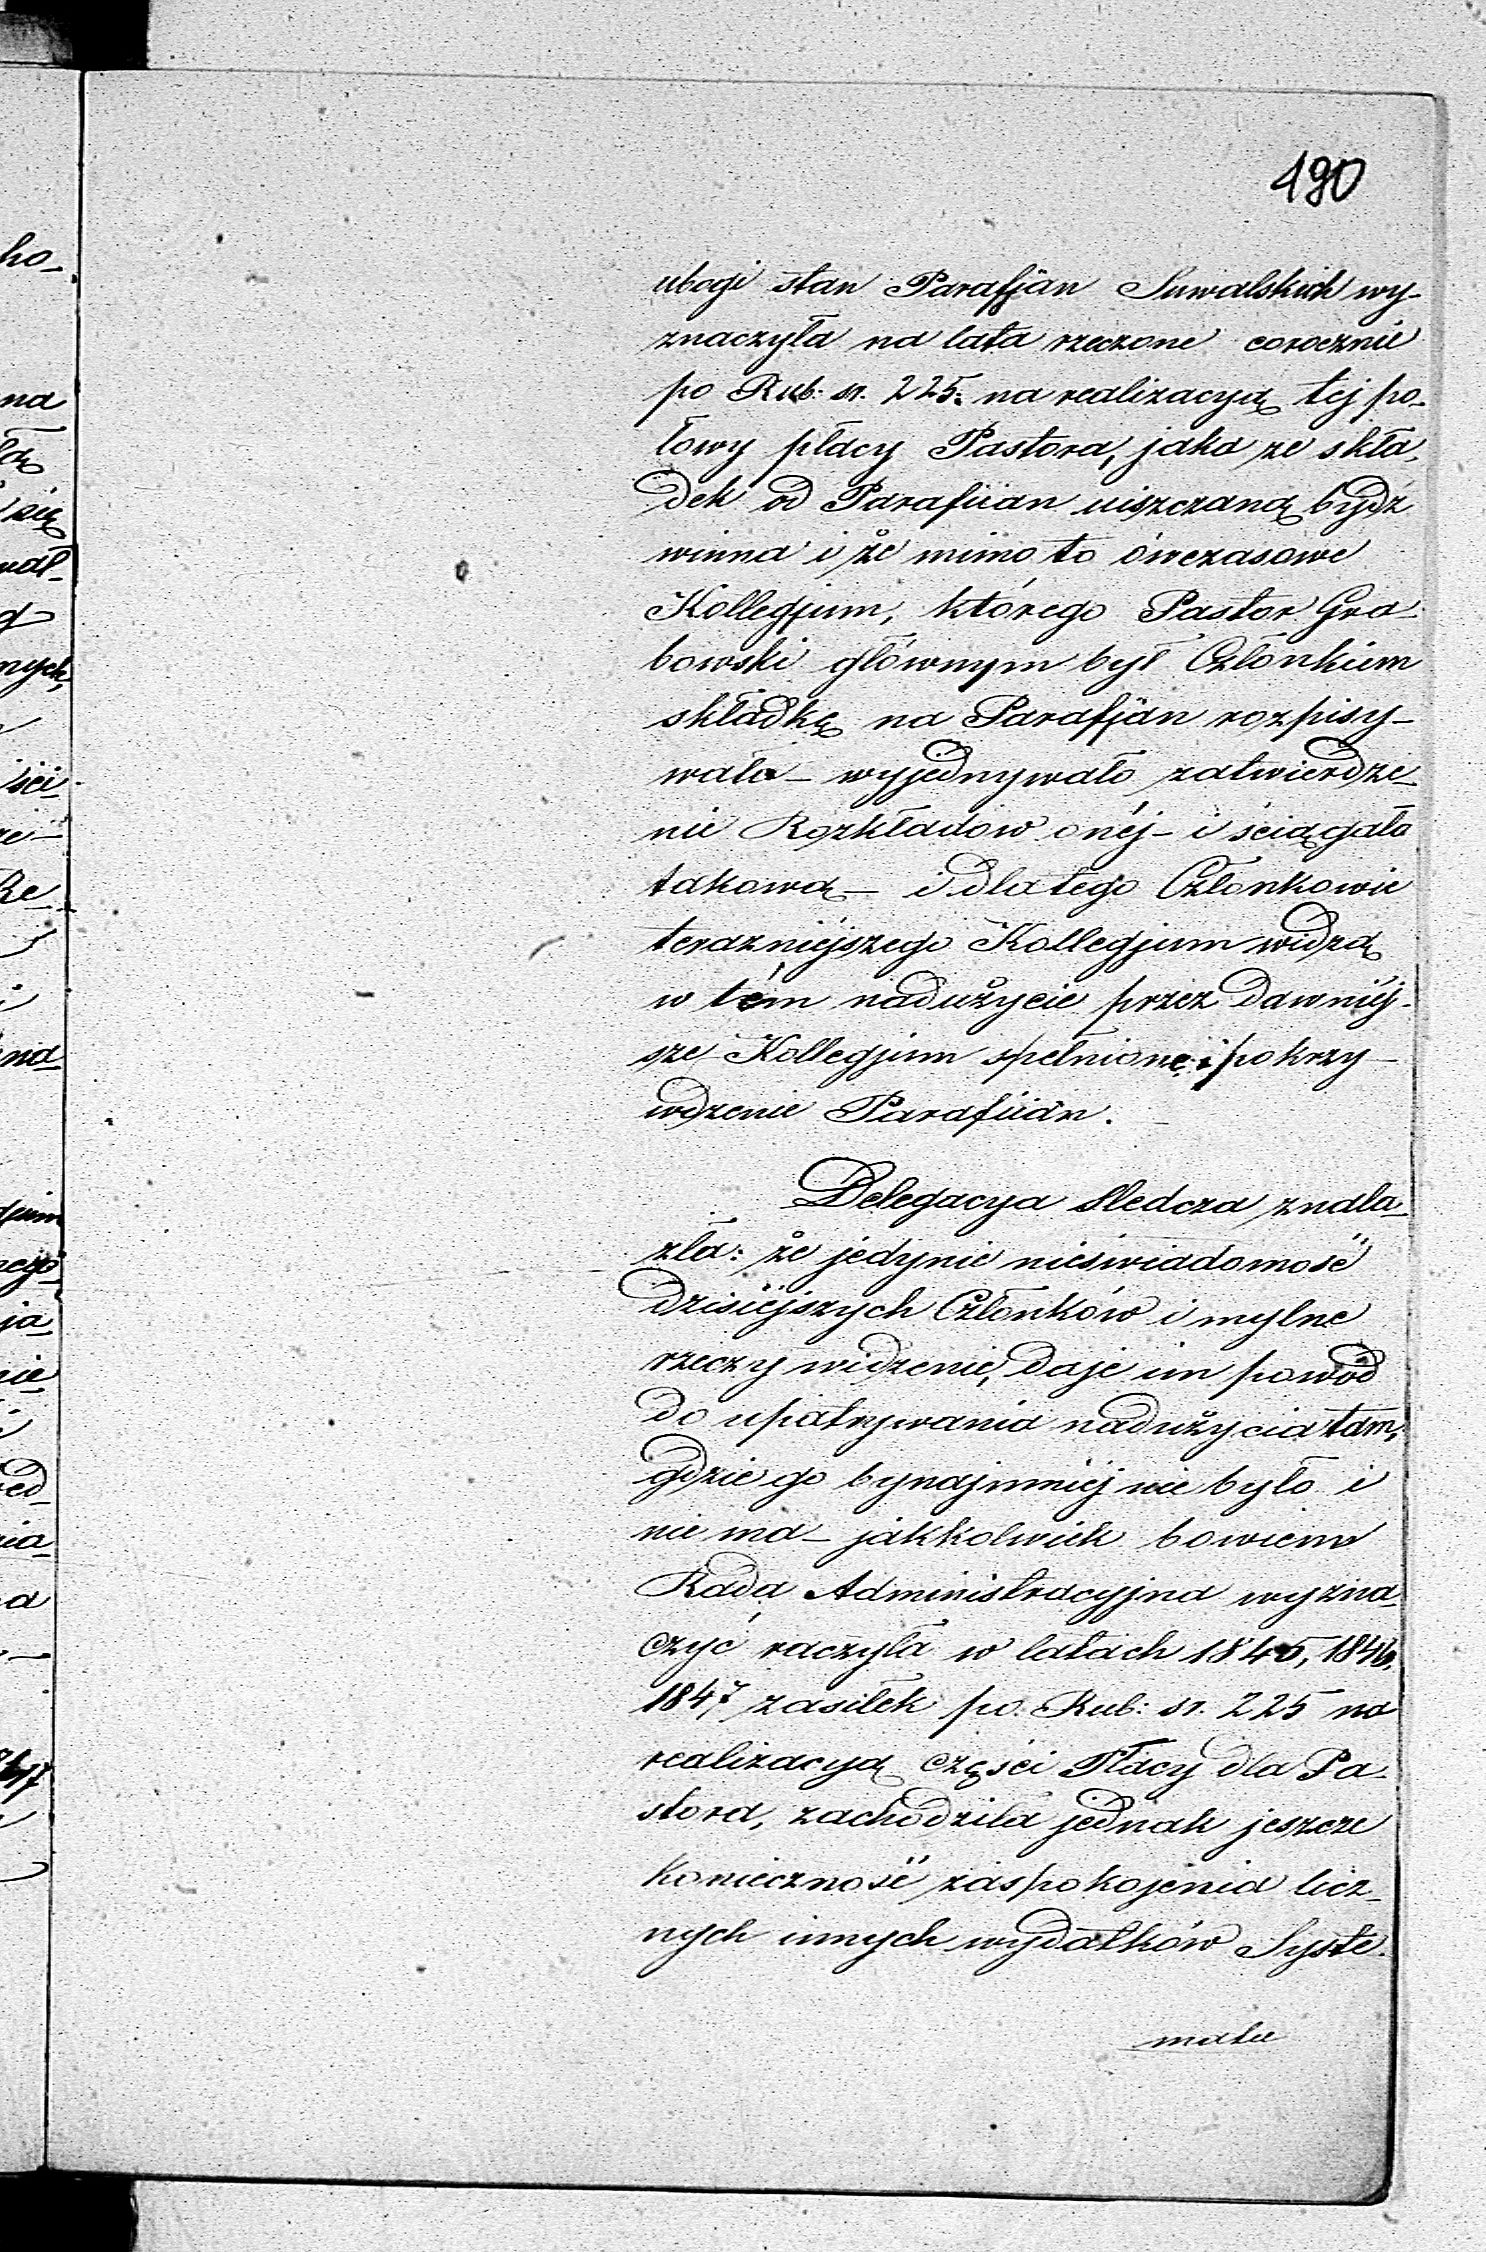 190
ubogi stan Parafjan Suwalskich wy-
znaczyła na lata rzeczone corocznie
po Rub: sr. 225: na realizacyą tej po-
łowy płacy Pastora, jaka ze skła-
dek od Parafiian uiszczaną bydź
winna i że mimo to ówczasowe
Kollegjum, którego Pastor Gra-
bowski głównym był Członkiem
składkę na Parafjan rozpisy-
wało – wyjednywało zatwierdze-
nie Rozkładów onéj – i ściągało
takową – i dla tego Członkowie
terazniejszego Kollegjum widzą
w tém nadużycie przez dawniéj-
sze Kollegjum spełnione i pokrzy-
wdzenie Parafiian.
Delegacya Sledcza znala-
zła: że jedynie nieświadomość
dzisiéjszych Członków i mylne
rzeczy widzenie, daje im powód
do upatrywania nadużycia tam,
gdzie go bynajmniéj nie było i
nie ma – jakkolwiek bowiem
Rada Administracyjna wyzna-
czyć raczyła w latach 1845, 1846,
1847 zasiłek po Rub: sr. 225 na
realizacyą części Płacy dla Pa-
stora, zachodziła jednak jeszcze
konieczność zaspokojenia licz-
nych innych wydatków Syste-
matu
ho-
na
się
wał-
nych,
ści-
Re-
na-
ja-
nie
ed-
nia-
a